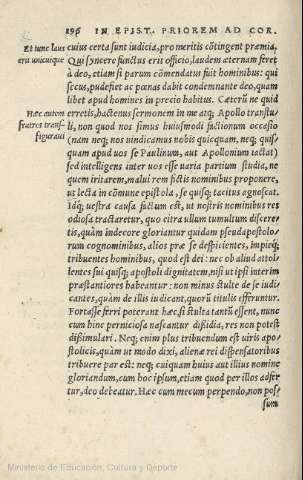 196 IN EPIST. PRIOREM AD COR.
Et tunc laus
erit unicuique
Hæc autem
fratres trans-
figuraui
cuius certa sunt iudicia, pro meritis cõtingent præmia.
Qui syncere functus erit officio, laudem æternam feret
à deo, etiam si parum cõmendatus fuit hominibus: qui
secus, pudefiet ac pœnas dabit condemnante deo, quam
libet apud homines in precio habitus. Cæterũ ne quid
erretis, hactenus sermonem in me atq; Apollo transtu
li, non quod nos simus huiusmodi factionum occasio
(nam neq; nos uindicamus nobis quicquam, neq; quis
quam apud uos se Paulinum, aut Apollonium iactat)
sed intelligens inter uos esse uaria partium studia, ne
quem irritarem, malui rem fictis nominibus proponere,
ut lecta in cõmune epistola, se quisq; tacitus agnoscat.
Idq; uestra causa factum est, ut nostris nominibus res
odiosa tractaretur, quo citra ullum tumultum discere
tis, quàm indecore gloriantur quidam pseudapostolo
rum cognominibus, alios præ se despicientes, impieq;
tribuentes hominibus, quod est dei: nec ob aliud attol
lentes sui quisq; apostoli dignitatem, nisi ut ipsi interim
præstantiores habeantur: non minus stulte de se iudi
cantes, quàm de illis iudicant, quorũ titulis efferuntur.
Fortasse ferri poterant hæc, si stulta tantũ essent, nunc
cum hinc perniciosa nascantur dißidia, res non potest
dißimulari. Neq; enim plus tribuendum est uiris apo-
stolicis, quàm ut modo dixi, alienæ rei dispensatoribus
tribuere par est: neq; cuiquam huius aut illius nomine
gloriandum, cum hoc ipsum, etiam quod per illos adfer
tur, deo debeatur. Hæc cum mecum perpendo, non pos
sum
Ministerio de Educación, Cultura y Deporte